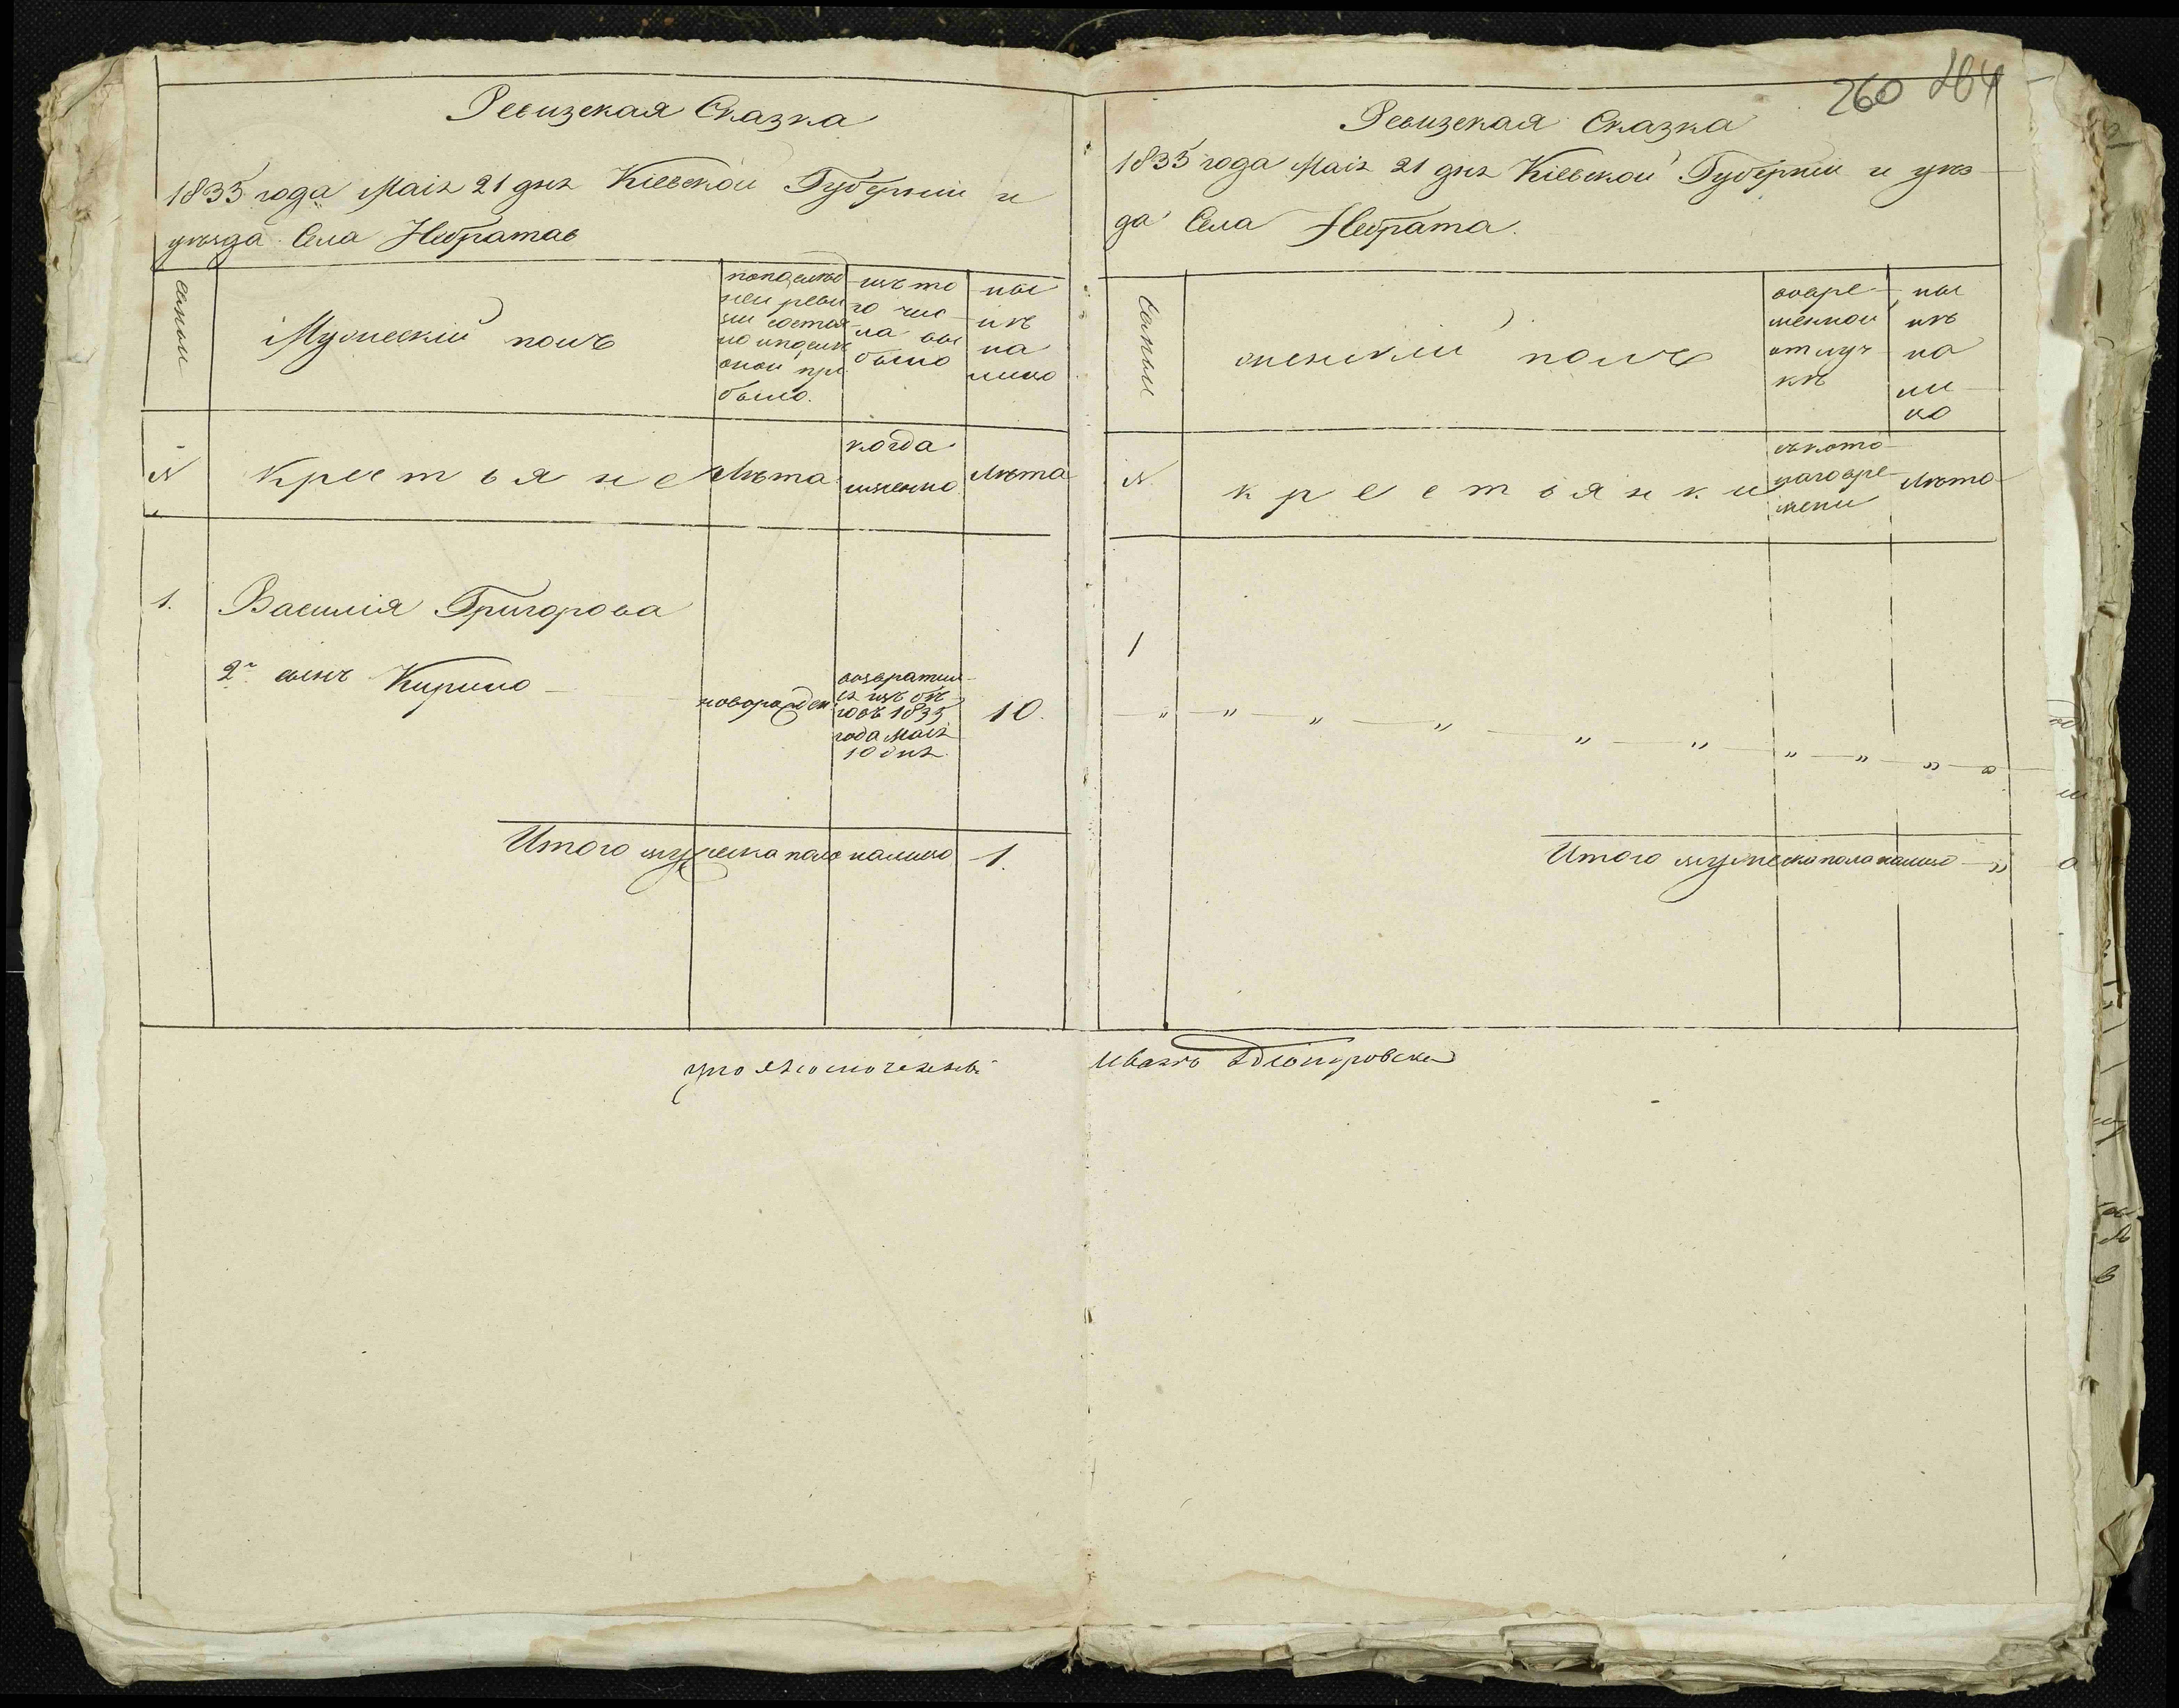 260 264
Ревизская Сказка
1835 года Маія 21 дня Кіевской Губерніи и
уѣзда Села Небратав
Семьи
Мужескій полъ
по послѣд
ней реви
зіи состоя
ло и послѣ
оной при
было.
изъ то
го чис
ла вы
было
ны
нѣ
на
лицо
№
Крестьяне
Лѣта
когда
именно
Лѣта
1.
Василія Григорова
2й сынъ Кирило
новорожден
возвратил
ся изъ бѣ
говъ 1835
года Маія
10 дня.
10.
Итого мужеска пола налицо 1.
уполномоченный
Ревизская Сказка
1835 года Маія 21 дня Кіевской Губерніи и уѣз
да Села Небрата.
Семьи
женскій полъ
во вре
менной
отлуч
кѣ
ны
нѣ
на
ли
цо
№
крестьянки
съ кото
раго вре
мени
Лѣта
1
" " " " " " " " " "
Итого мужеска пола налицо "
Иванъ